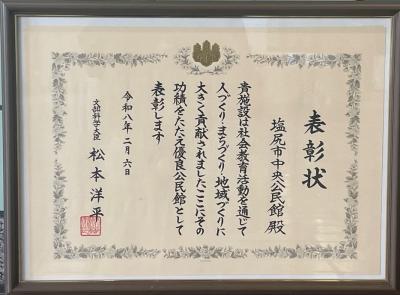 表彰状
塩尻市中央公民館 殿
貴施設は社会教育活動を通じて
人づくり・まちづくり・地域づくりに
大きく貢献されましたここにその
功績をたたえ優良公民館として
表彰します
令和八年二月六日
文部科学大臣 松本洋平